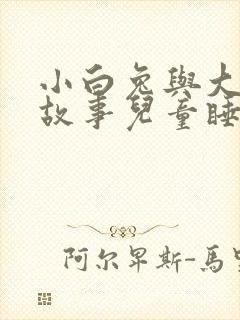 小白兔與大
故事兒童睡
阿尔卑斯-馬